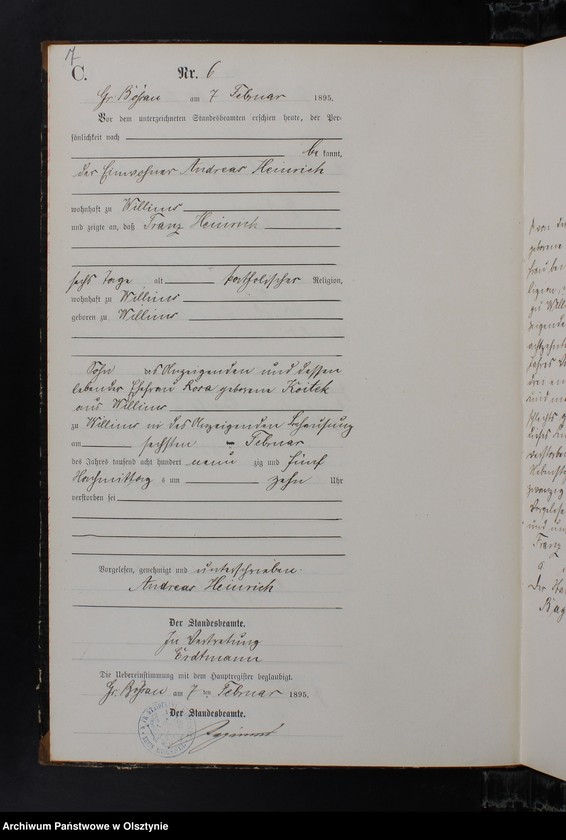 7
C.
Nr. 6
Gr. Bößau am 7 Februar 1895.
Vor dem unterzeichneten Standesbeamten erschien heute, der Per-
sönlichkeit nach
be kannt,
der Einwohner Andreas Heinrich
wohnhaft zu Willims
und zeigte an, daß Franz Heinrich
sechs Tage alt katholischer Religion,
wohnhaft zu Willims
geboren zu Willims
Sohn des Anzeigenden und dessen
lebender Ehefrau Rosa geborene Koitek
aus Willims
zu Willims in des Anzeigenden Behausung
am sechsten Februar
des Jahres tausend acht hundert neun zig und fünf
Nachmittag s um zehn Uhr
verstorben sei
Vorgelesen, genehmigt und unterschrieben.
Andreas Heinrich
Der Standesbeamte.
In Vertretung
Erdtmann
Die Uebereinstimmung mit dem Hauptregister beglaubigt.
Gr. Bößau am 7 ten Februar 1895.
Der Standesbeamte.
Archiwum Państwowe w Olsztynie